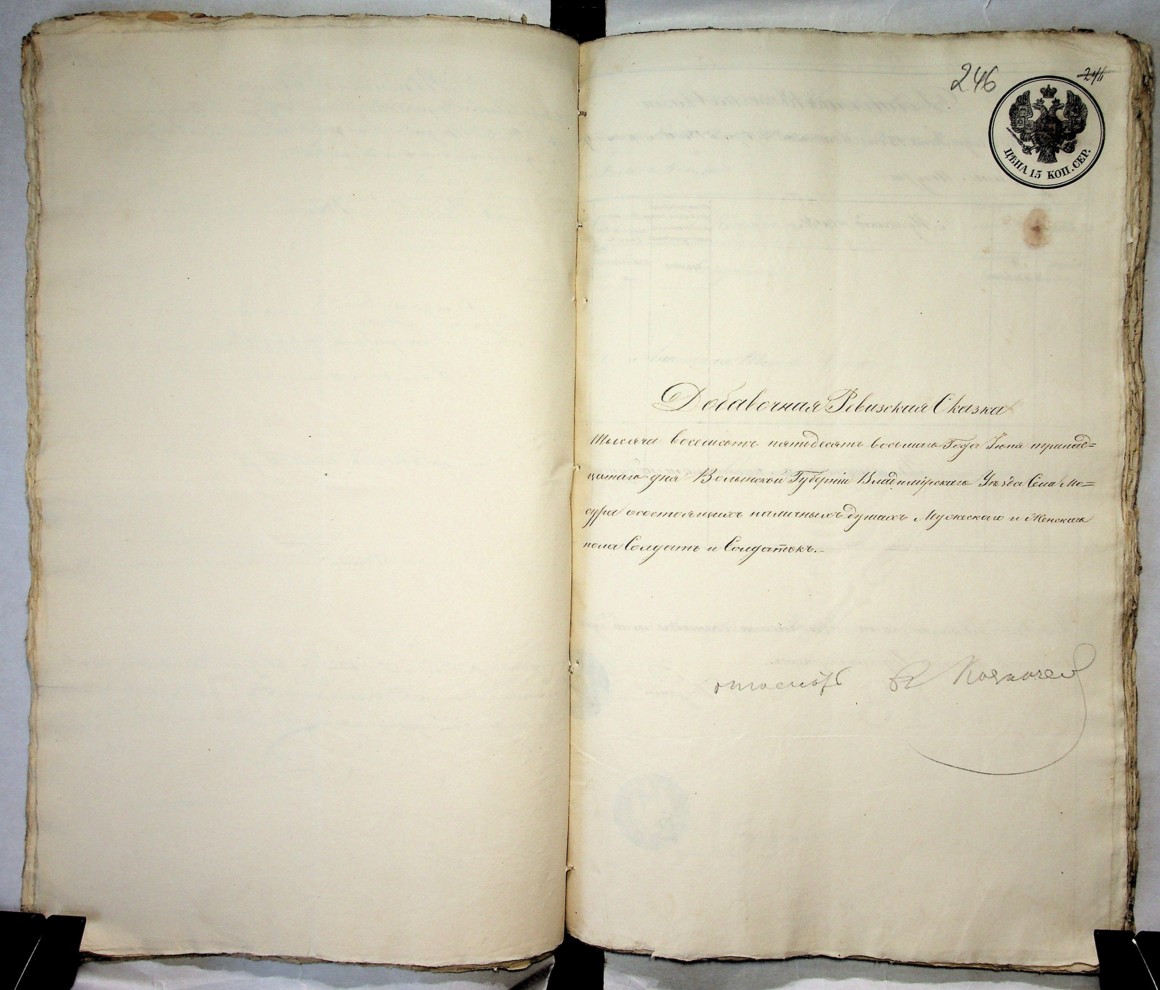 246
246
ЦѢНА 15 КОП. СЕР.
Добавочная Ревизская Сказка
Тысяча восемсотъ пятьдесятъ восьмаго Года Іюня тринад=
цатаго дня Волынской Губерніи Владимірскаго Уѣзда Села Мо=
сура о состоящихъ наличныхъ душахъ Мужескаго и Женскаго
пола Солдатъ и Солдатокъ.